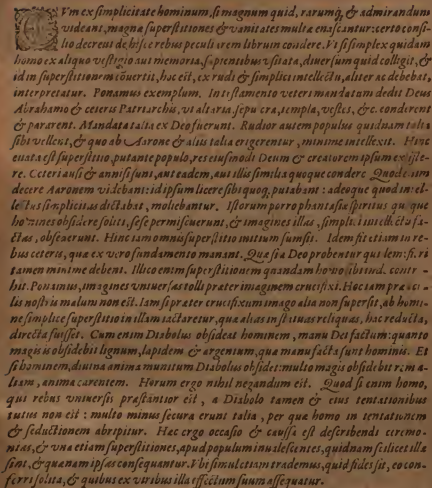 CVm ex simplicitate hominum, si magnum quid, rarumq́, & admirandum
videant, magna superstitiones & vanitates multæ enascantur: certo consi-
lio decreui de hisce rebus peculiarem librum condere. Vt si simplex quidam
homo ex aliquo vestigio aut memoria, sapientibus vsitata, diuersum quid colligit, &
id in superstitionem cōuertit, hoc est, ex rudi & simplici intellectu, aliter ac debebat,
interpretatur. Ponamus exemplum. In testamento veteri mandatum dedit Deus
Abrahamo & ceteris Patriarchis, vt altaria, sepulcra, templa, vestes, &c. conderent
& pararent. Mandata talia ex Deo fuerunt. Rudior autem populus quidnam talia
sibi vellent, & quo ab Aarone & aliis talia erigerentur, minime intellexit. Hinc
enata est superstitio, putante populo, res eiusmodi Deum & creatorem ipsum existe-
re. Ceteri ausi & annisi sunt, aut eadem, aut illis similia quoque condere. Quod enim
decere Aaronem videbant: id ipsum licere sibi quoq, putabant: adeoque quod intel-
lectus simplicitas dictabat, moliebantur. Istorum porro phantasiæ spiritus quique
homines obsidere soliti, sese permiscuerunt, & imagines illas, simplici intellectu fa-
ctas, obsederunt. Hinc iam omnis superstitio initium sumsit. Idem fit etiam in re-
bus ceteris, quæ ex vero fundamento manant. Quæ si a Deo probentur quidem: fieri
tamen minime debent. Illico enim superstitionem quandam homo sibi cud. contr-
hit. Ponamus, imagines vniuersas tolli præter imaginem crucifixi. Hoc iam præ ocu-
lis nostris malum non est. Iam si præter crucifixum imago alia non supersit, ab homi-
ne simplice superstitio in illam iactaretur, quæ alias in singulas reliquas, hac reducta,
directa fuisset. Cum enim Diabolus obsideat hominem, manu Dei factum: quanto
magis is obsidebit lignum, lapidem & argentum, quæ manu facta sunt hominis. Et
si hominem, diuina anima munitum Diabolus obsidet: multo magis obsidebit rem a-
liam, anima carentem. Horum ergo nihil negandum est. Quod si enim homo,
qui rebus vniuersis præstantior est, a Diabolo tamen & eius tentationibus
tutus non est: multo minus secura erunt talia, per quæ homo in tentationem
& seductionem abripitur. Hæc ergo occasio & caussa est describendi ceremo-
nias, & vna etiam superstitiones, apud populum inualescentes, quidnam scilicet illa
sint, & quanam ipsas consequantur. Vbi simul etiam trademus, quid fides sit, eo con-
ferri solita, & quibus ex viribus illa effectum suum assequatur.